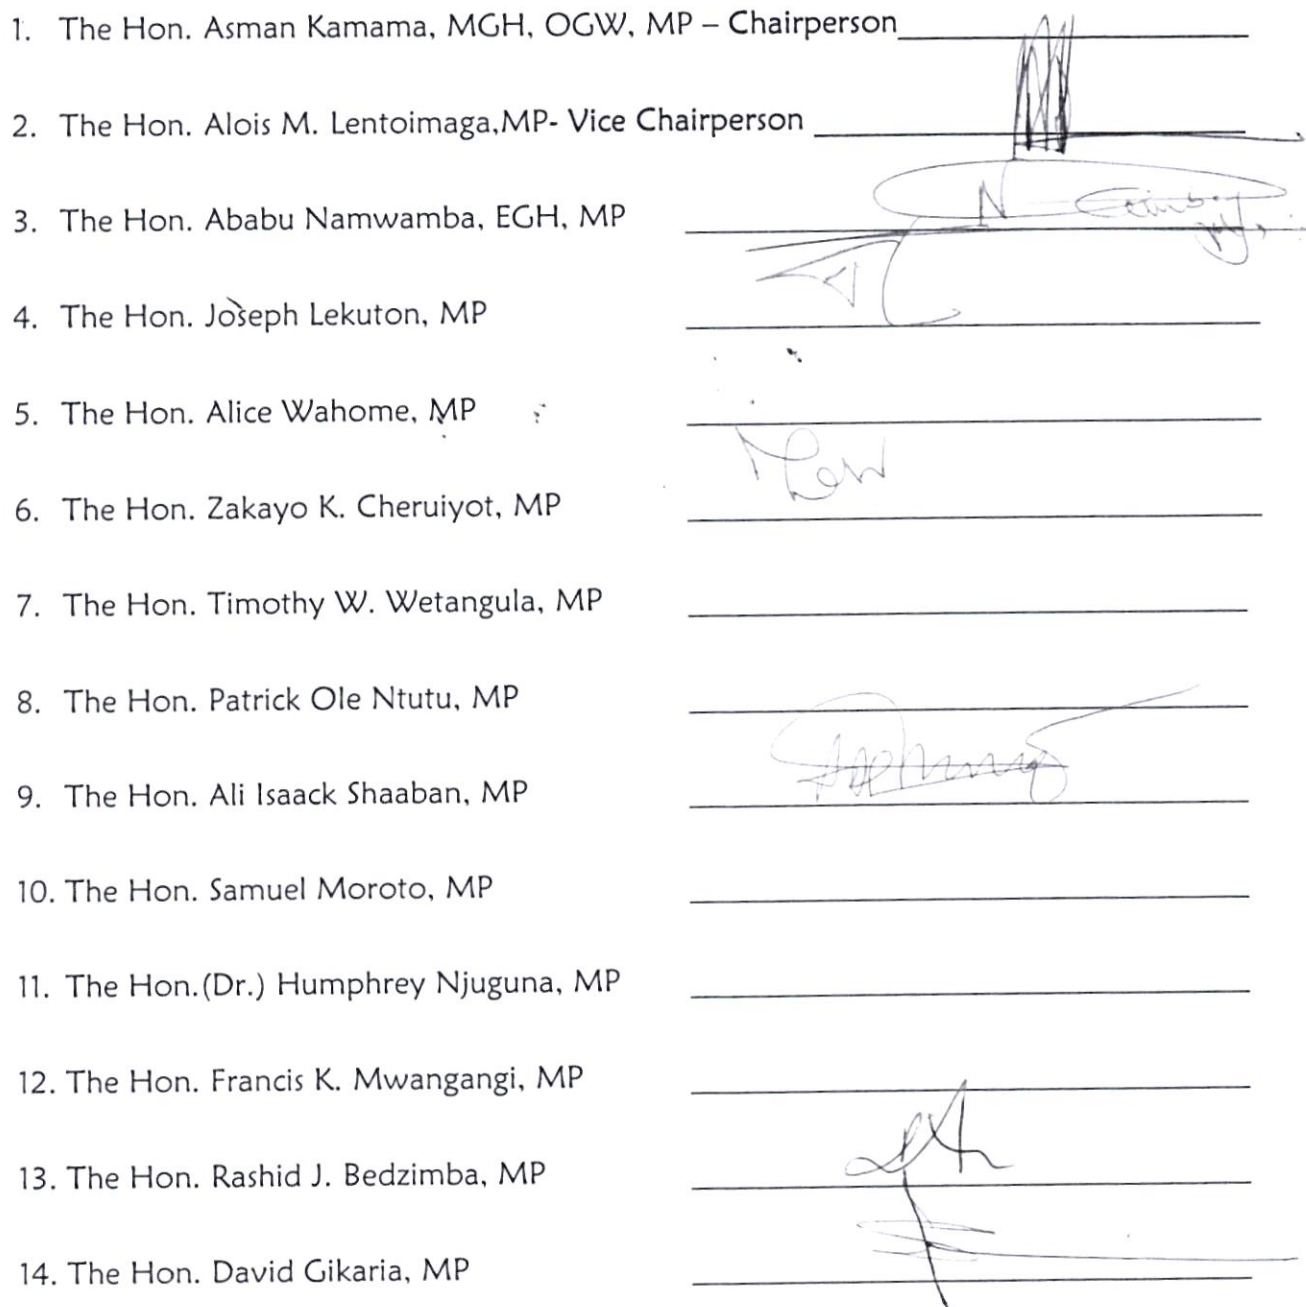 1. The Hon. Asman Kamama, MGH, OGW, MP – Chairperson
2. The Hon. Alois M. Lentoimaga,MP- Vice Chairperson
3. The Hon. Ababu Namwamba, EGH, MP
4. The Hon. Joseph Lekuton, MP
5. The Hon. Alice Wahome, MP
6. The Hon. Zakayo K. Cheruiyot, MP
7. The Hon. Timothy W. Wetangula, MP
8. The Hon. Patrick Ole Ntutu, MP
9. The Hon. Ali Isaack Shaaban, MP
10. The Hon. Samuel Moroto, MP
11. The Hon.(Dr.) Humphrey Njuguna, MP
12. The Hon. Francis K. Mwangangi, MP
13. The Hon. Rashid J. Bedzimba, MP
14. The Hon. David Gikaria, MP